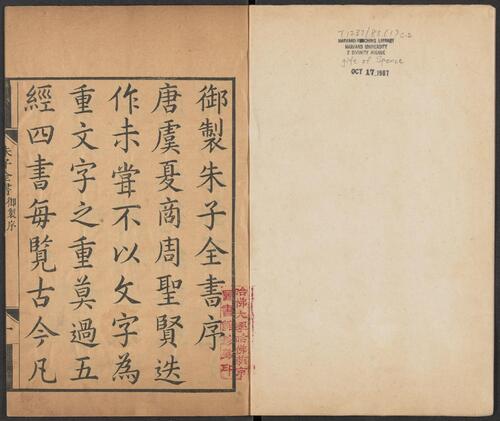 御製朱子全書序
唐虞夏商周聖賢迭
作未嘗不以文字為
重文字之重莫過五
經四書每覽古今凡
朱子全書 御製序
一
哈佛大學哈佛燕京
圖書館珍藏印
HARVARD-YENCHING LIBRARY
HARVARD UNIVERSITY
2 DIVINITY AVENUE
gift of Spence
OCT 17 1987